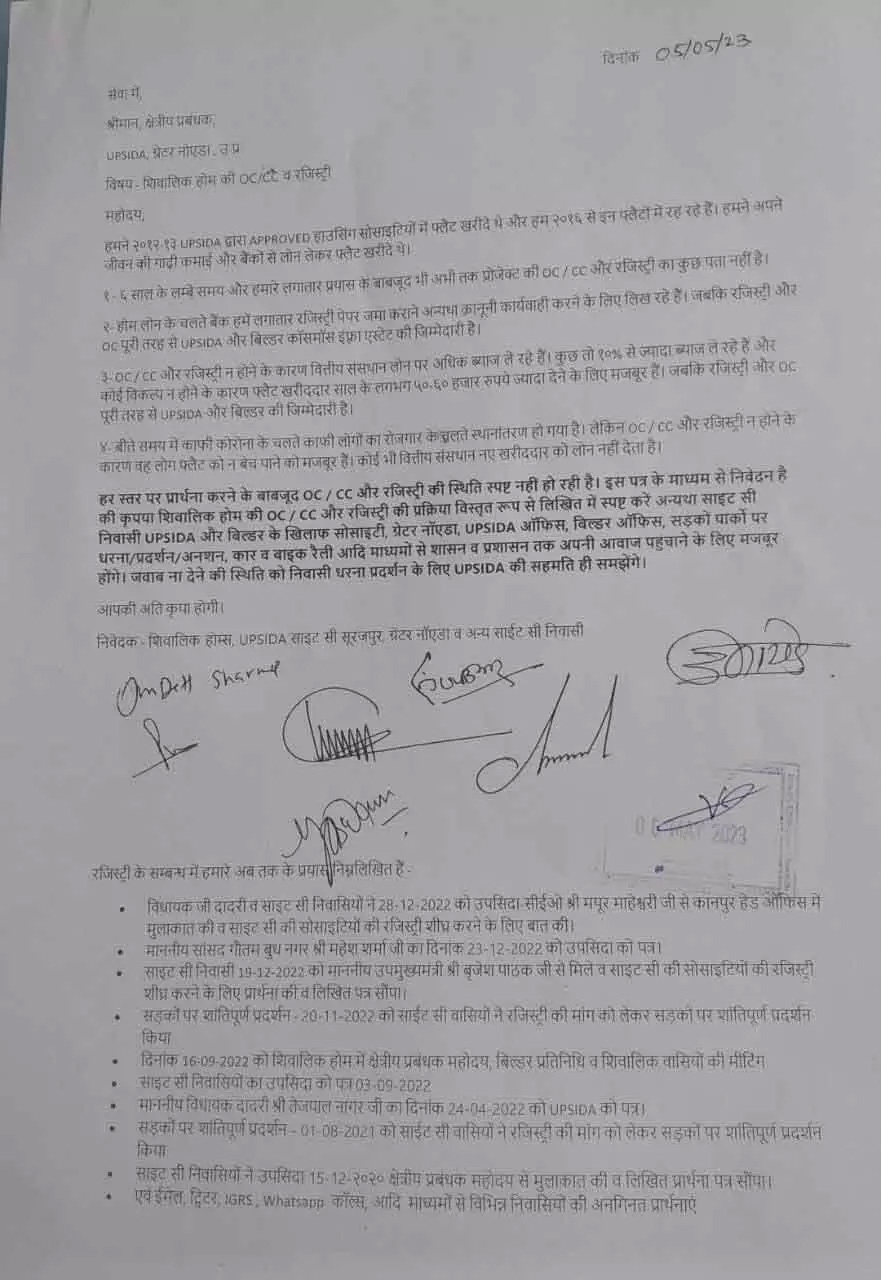 दिनांक 05/05/23
सेवा में,
श्रीमान, क्षेत्रीय प्रबंधक,
UPSIDA, ग्रेटर नोएडा . उ प्र
विषय - शिवालिक होम की OC/CC व रजिस्ट्री
महोदय,
हमने २०१२-१३ UPSIDA द्वारा APPROVED हाउसिंग सोसाइटियों में फ्लैट खरीदे थे और हम २०१६ से इन फ्लैटों में रह रहे हैं। हमने अपने
जीवन की गाढ़ी कमाई और बैंकों से लोन लेकर फ्लैट खरीदे थे।
१ - ६ साल के लम्बे समय और हमारे लगातार प्रयास के बाबजूद भी अभी तक प्रोजेक्ट की OC / CC और रजिस्ट्री का कुछ पता नहीं है।
२- होम लोन के चलते बैंक हमें लगातार रजिस्ट्री पेपर जमा कराने अन्यथा क़ानूनी कार्यवाही करने के लिए लिख रहे हैं। जबकि रजिस्ट्री और
OC पूरी तरह से UPSIDA और बिल्डर कॉसमॉस इंफ्रा एस्टेट की जिम्मेदारी है।
३- OC / CC और रजिस्ट्री न होने के कारण वित्तीय संसथान लोन पर अधिक ब्याज ले रहे हैं। कुछ तो १०% से ज्यादा ब्याज ले रहे हैं और
कोई विकल्प न होने के कारण फ्लैट खरीददार साल के लगभग ५०-६० हजार रुपये ज्यादा देने के लिए मजबूर हैं। जबकि रजिस्ट्री और OC
पूरी तरह से UPSIDA और बिल्डर की जिम्मेदारी है।
४- बीते समय में काफी कोरोना के चलते काफी लोगों का रोजगार के चलते स्थानांतरण हो गया है। लेकिन OC / CC और रजिस्ट्री न होने के
कारण वह लोग फ्लैट को न बेच पाने को मजबूर हैं। कोई भी वित्तीय संसथान नए खरीददार को लोन नहीं देता है।
हर स्तर पर प्रार्थना करने के बाबजूद OC / CC और रजिस्ट्री की स्थिति स्पष्ट नहीं हो रही है। इस पत्र के माध्यम से निवेदन है
की कृपया शिवालिक होम की OC / CC और रजिस्ट्री की प्रक्रिया विस्तृत रूप से लिखित में स्पष्ट करें अन्यथा साइट सी
निवासी UPSIDA और बिल्डर के खिलाफ सोसाइटी, ग्रेटर नॉएडा, UPSIDA ऑफिस, बिल्डर ऑफिस, सड़कों पार्कों पर
धरना/प्रदर्शन/अनशन, कार व बाइक रैली आदि माध्यमों से शासन व प्रशासन तक अपनी आवाज पहुंचाने के लिए मजबूर
होंगे। जवाब ना देने की स्थिति को निवासी धरना प्रदर्शन के लिए UPSIDA की सहमति ही समझेंगे।
आपकी अति कृपा होगी।
निवेदक - शिवालिक होम्स, UPSIDA साइट सी सूरजपुर, ग्रेटर नॉएडा व अन्य साईट सी निवासी
OmDett Sharma
MAY 2023
रजिस्ट्री के सम्बन्ध में हमारे अब तक के प्रयास निम्नलिखित हैं -
• विधायक जी दादरी व साइट सी निवासियों ने 28-12-2022 को उपसिदा-सीईओ श्री मयूर माहेश्वरी जी से कानपुर हेड ऑफिस में
मुलाकात की व साइट सी की सोसाइटियों की रजिस्ट्री शीघ्र करने के लिए बात की।
• माननीय सांसद गौतम बुध नगर श्री महेश शर्मा जी का दिनांक 23-12-2022 को उपसिदा को पत्र।
• साइट सी निवासी 19-12-2022 को माननीय उपमुख्यमंत्री श्री बृजेश पाठक जी से मिले व साइट सी की सोसाइटियों की रजिस्ट्री
शीघ्र करने के लिए प्रार्थना की व लिखित पत्र सौंपा।
• सड़कों पर शांतिपूर्ण प्रदर्शन - 20-11-2022 को साईट सी वासियों ने रजिस्ट्री की मांग को लेकर सड़कों पर शांतिपूर्ण प्रदर्शन
किया
• दिनांक 16-09-2022 को शिवालिक होम में क्षेत्रीय प्रबंधक महोदय, बिल्डर प्रतिनिधि व शिवालिक वासियों की मीटिंग
• साइट सी निवासियों का उपसिदा को पत्र 03-09-2022
• माननीय विधायक दादरी श्री तेजपाल नागर जी का दिनांक 24-04-2022 को UPSIDA को पत्र।
• सड़कों पर शांतिपूर्ण प्रदर्शन – 01-08-2021 को साईट सी वासियों ने रजिस्ट्री की मांग को लेकर सड़कों पर शांतिपूर्ण प्रदर्शन
किया
• साइट सी निवासियों ने उपसिदा 15-12-२०२० क्षेत्रीय प्रबंधक महोदय से मुलाकात की व लिखित प्रार्थना पत्र सौंपा।
• एवं ईमेल, ट्विटर, IGRS , Whatsapp कॉल्स, आदि माध्यमों से विभिन्न निवासियों की अनगिनत प्रार्थनाएं